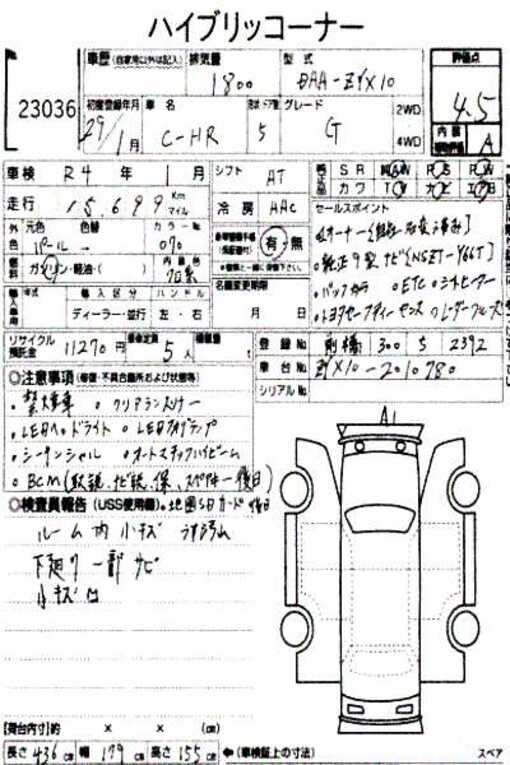 ハイブリッコーナー
23036
車歴 (自家用以外は記入) 排気量 型式 評価点
1800 DAA-ZYX10 4.5
初度登録年月 車名 形状・ドア数 グレード 2WD
29年1月 C-HR 5 G 4WD
内装 A
車検 R4年 1月 シフト AT
SR 純AW PS PW
カワ TV ナビ エアB
走行 15,699 Km マイル 冷房 AAC セールスポイント
外色 元色 色替 カラーNo
パール 070 有・無
・純正9型ナビ(NSZT-Y66T)
燃料 ガソリン・軽油・( ) 内装色 黒
・バックカメラ ・ETC ・シートヒーター
名義変更期限
年式 輸入区分 ハンドル
・トヨタセーフティーセンス ・レーダークルーズ
ディーラー・並行 左・右 月 日
リサイクル預託金 11270円 乗車定員 5人 積載量
登録No 前橋 300 5 2392
車台No ZYX10-2010780
シリアルNo
◎注意事項 (修復・不具合箇所および状態等)
・禁煙車 ・クリアランスソナー
・LEDヘッドライト ・LEDフォグランプ
・シーケンシャル ・オートマチックハイビーム
・BCM(取説、ナビ説、保、スペアキー後日)
◎検査員報告 (USS使用欄)・地図SDカード後日
ルーム内小キズ
下廻り一部サビ
小キズ凹
A1
[荷台内寸]約 × × (cm)
長さ 436cm 幅 179cm 高さ 155cm ←(車検証上の寸法) スペア